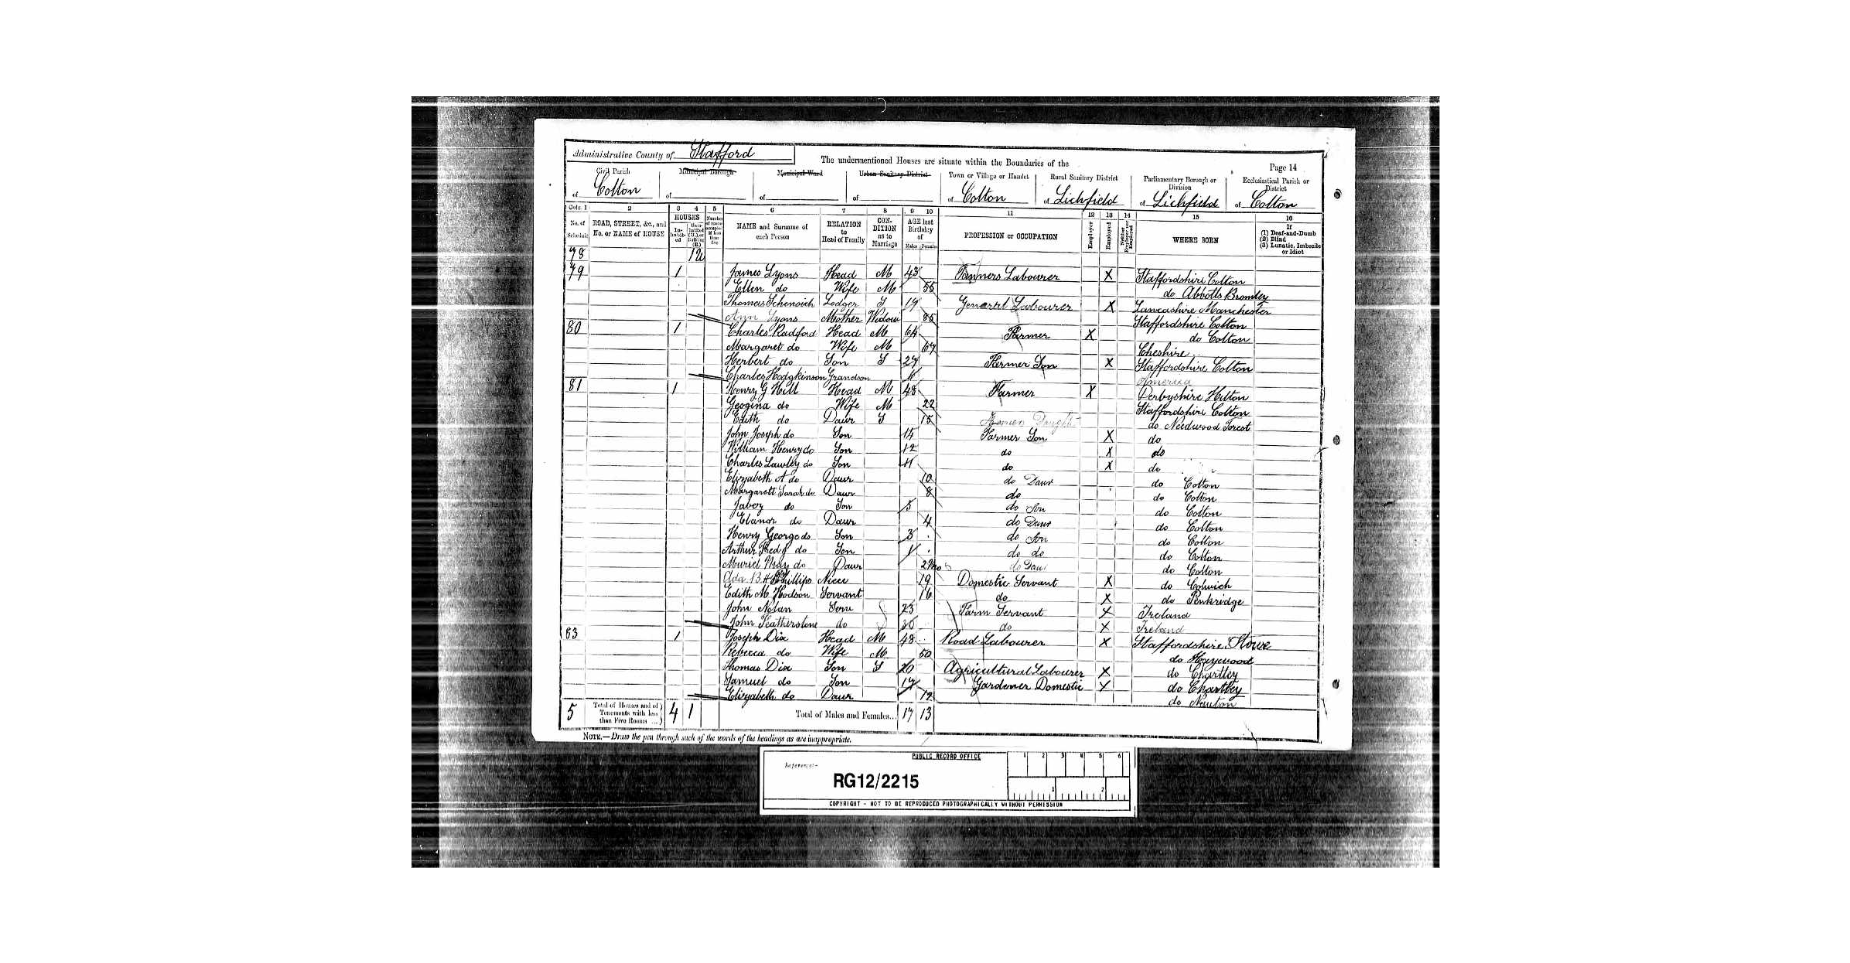 Administrative County of Stafford
The undermentioned Houses are situate within the Boundaries of the
Page 14
Civil Parish of Colton
Municipal Borough of
Municipal Ward of
Urban Sanitary District of
Town or Village or Hamlet of Colton
Rural Sanitary District of Lichfield
Parliamentary Borough or Division of Lichfield
Ecclesiastical Parish or District of Colton
Cols. 1 2 3 4 5 6 7 8 9 10 11 12 13 14 15 16
No. of Schedule ROAD, STREET, &c., and No. or NAME of HOUSE HOUSES NAME and Surname of each Person RELATION to Head of Family CONDITION as to Marriage AGE last Birthday of Males Females PROFESSION or OCCUPATION Employer Employed WHERE BORN If (1) Deaf-and-Dumb (2) Blind (3) Lunatic, Imbecile or Idiot
78
79 1 James Lyons Head M 43 Farmers Labourer X Staffordshire Colton
Ellen do Wife M 55 do Abbotts Bromley
Thomas Lodger S 19 General Labourer X Lancashire Manchester
Ann Lyons Mother Widow 85 Staffordshire Colton
80 1 Charles Radford Head M 64 Farmer X do Colton
Margaret do Wife M 67 Cheshire
Herbert do Son S 27 Farmer Son X Staffordshire Colton
Charles Hodgkinson Grandson America
81 1 Henry G Hill Head M 43 Farmer X Derbyshire Hilton
Geogina do Wife M Staffordshire Colton
Edith do Daur S 15 do Needwood Forest
John Joseph do Son 14 Farmer Son X do
William Henry do Son 12 do X do
Charles Lawley do Son 11 do X do
Elizabeth A do Daur 10 do Daur do Colton
Margarett Sarah do Daur 8 do do Colton
Jabez do Son 5 do Son do Colton
Elanor do Daur 4 do Daur do Colton
Henry George do Son 3 do Son do Colton
Arthur Fred do Son 1 do do do Colton
Muriel May do Daur do Daur do Colton
Ada Phillips Niece 19 Domestic Servant X do Colwich
Edith M Hodson Servant 16 do X do Penkridge
John Nolan Serv 23 Farm Servant X Ireland
John Featherstone do 30 do X Ireland
83 1 Joseph Dix Head M 48 Road Labourer X Staffordshire Stowe
Rebecca do Wife M 50 do Haywood
Thomas Dix Son S Agricultural Labourer X do Chartley
Samuel do Son 17 Gardener Domestic X do Chartley
Elizabeth do Daur 12 do Newton
5 Total of Houses and of Tenements with less than Five Rooms 4 1 Total of Males and Females... 17 13
NOTE.—Draw the pen through such of the words of the headings as are inappropriate.
PUBLIC RECORD OFFICE
Reference:-
RG12/2215
COPYRIGHT - NOT TO BE REPRODUCED PHOTOGRAPHICALLY WITHOUT PERMISSION